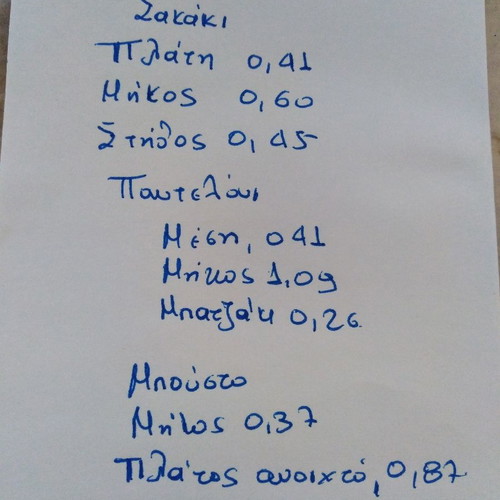 Σακάκι
Πλάτη 0,41
Μήκος 0,60
Στήθος 0,45
Παντελόνι
Μέση, 041
Μήκος 1,09
Μπατζάκ 0,26
Μπούστο
Μήκος 0,37
Πλάτος ανοιχτό, 0,87